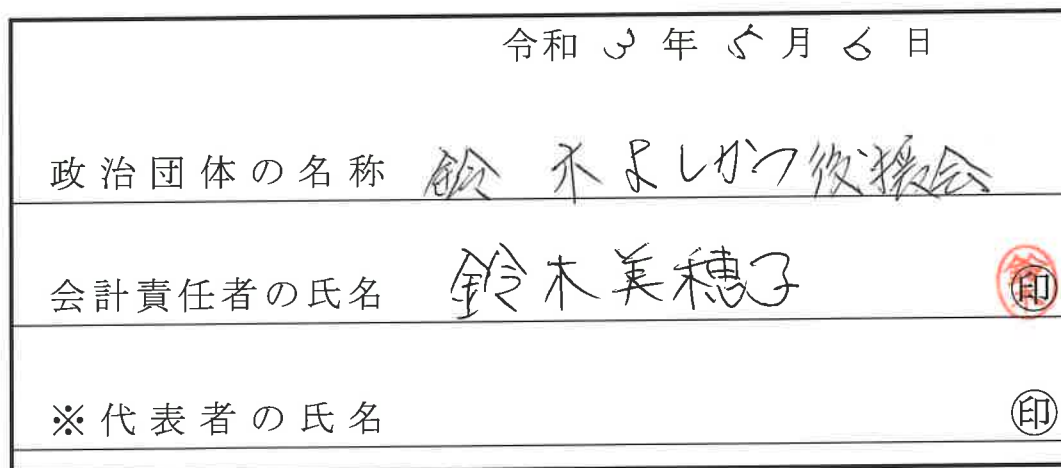 令和3年5月6日
政治団体の名称 鈴木よしかつ後援会
会計責任者の氏名 鈴木美穂子 ㊞
※代表者の氏名 ㊞